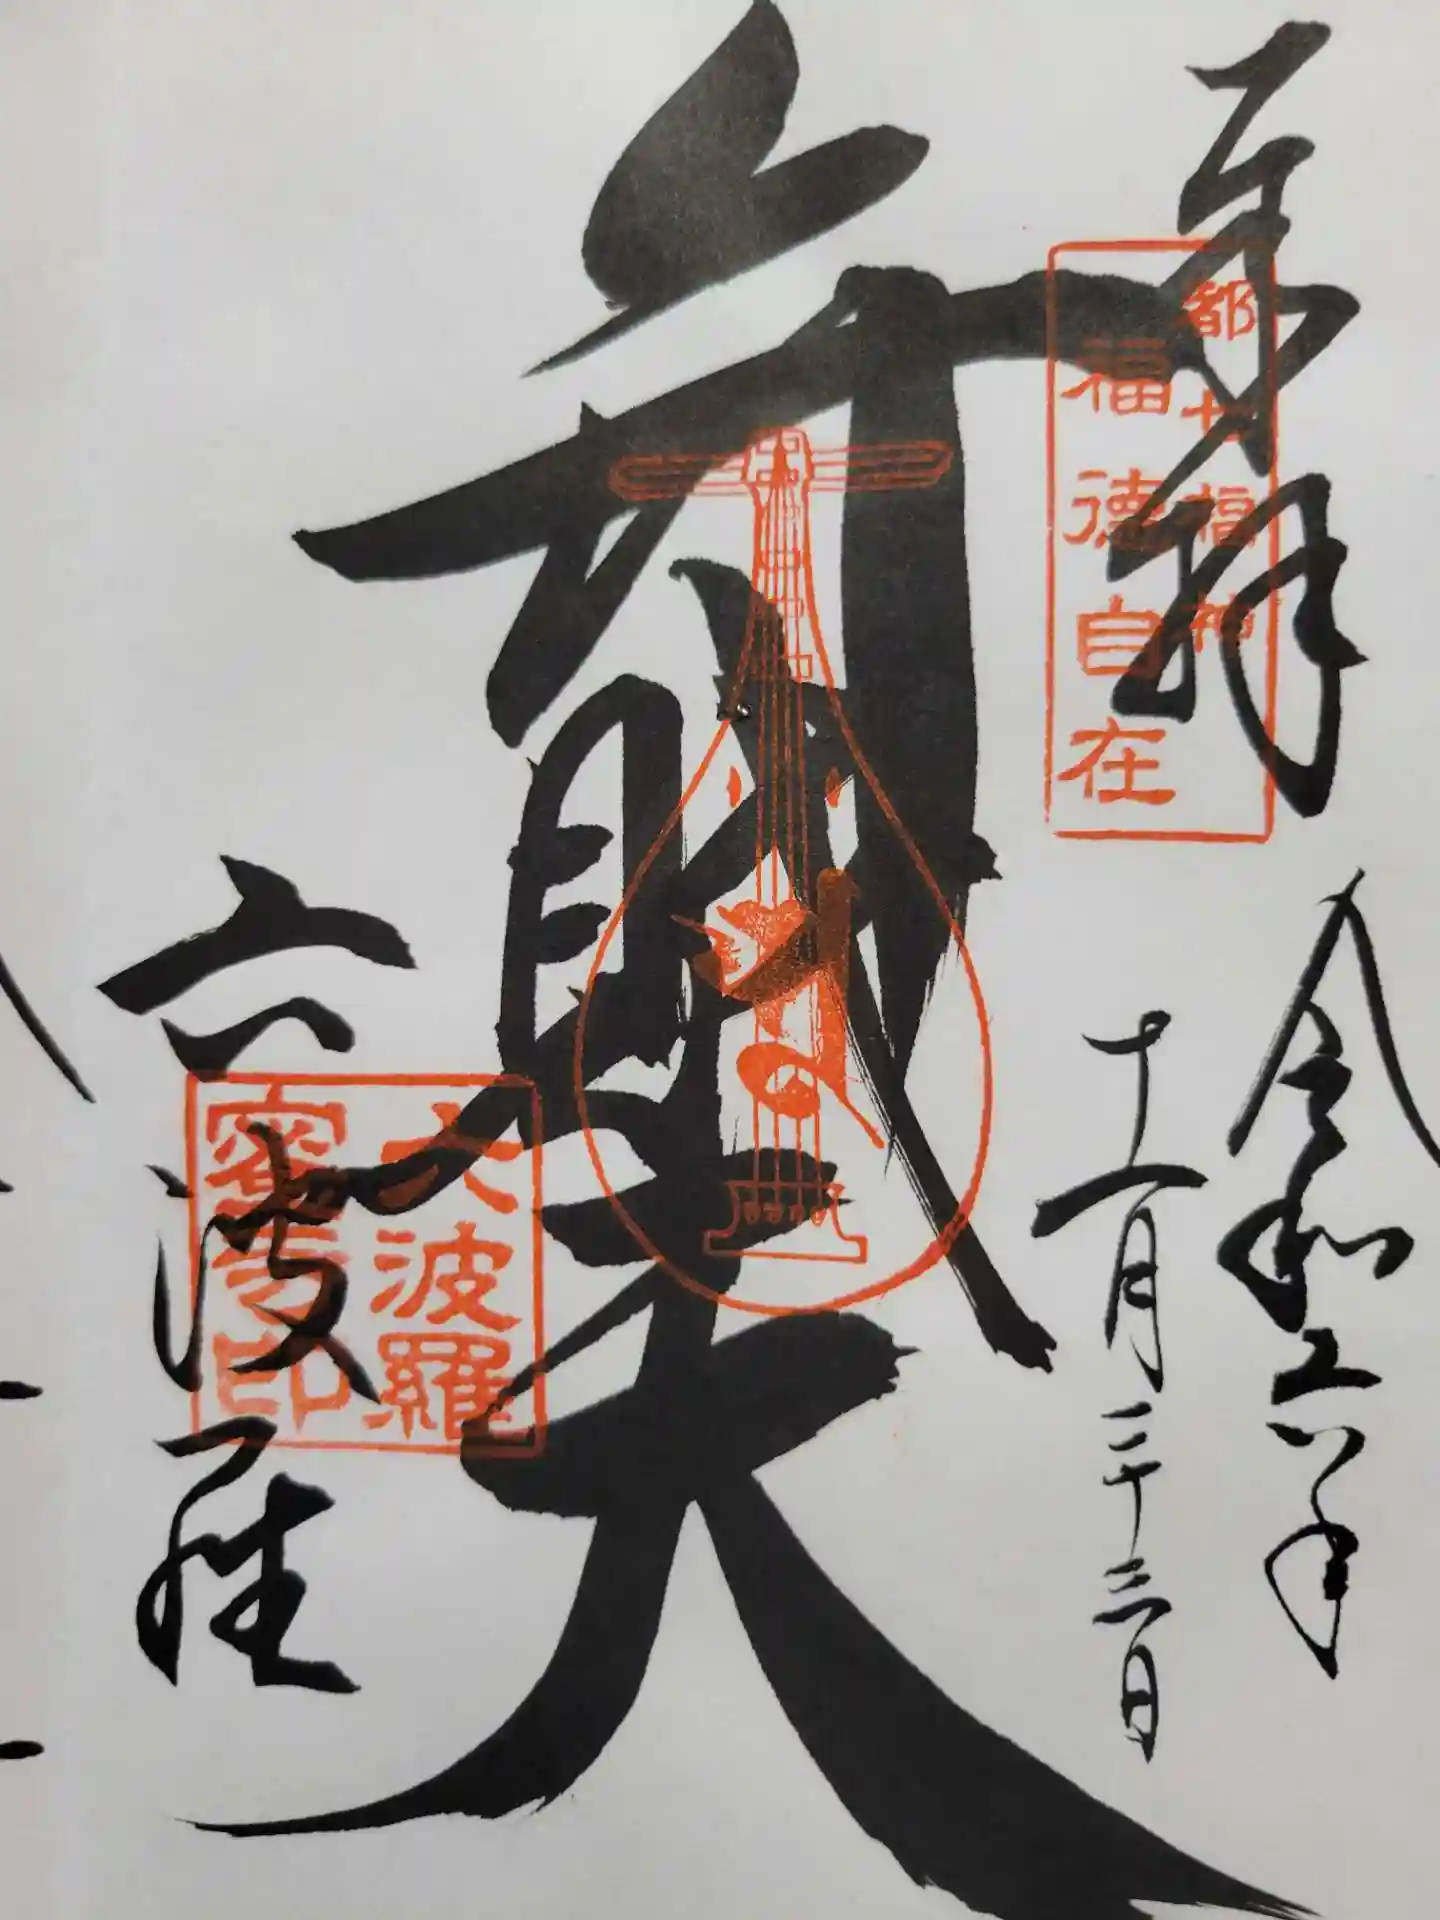 奉拝
都七福神
福徳自在
令和六年
十一月二十三日
弁財天
六波羅
六波羅
蜜寺印